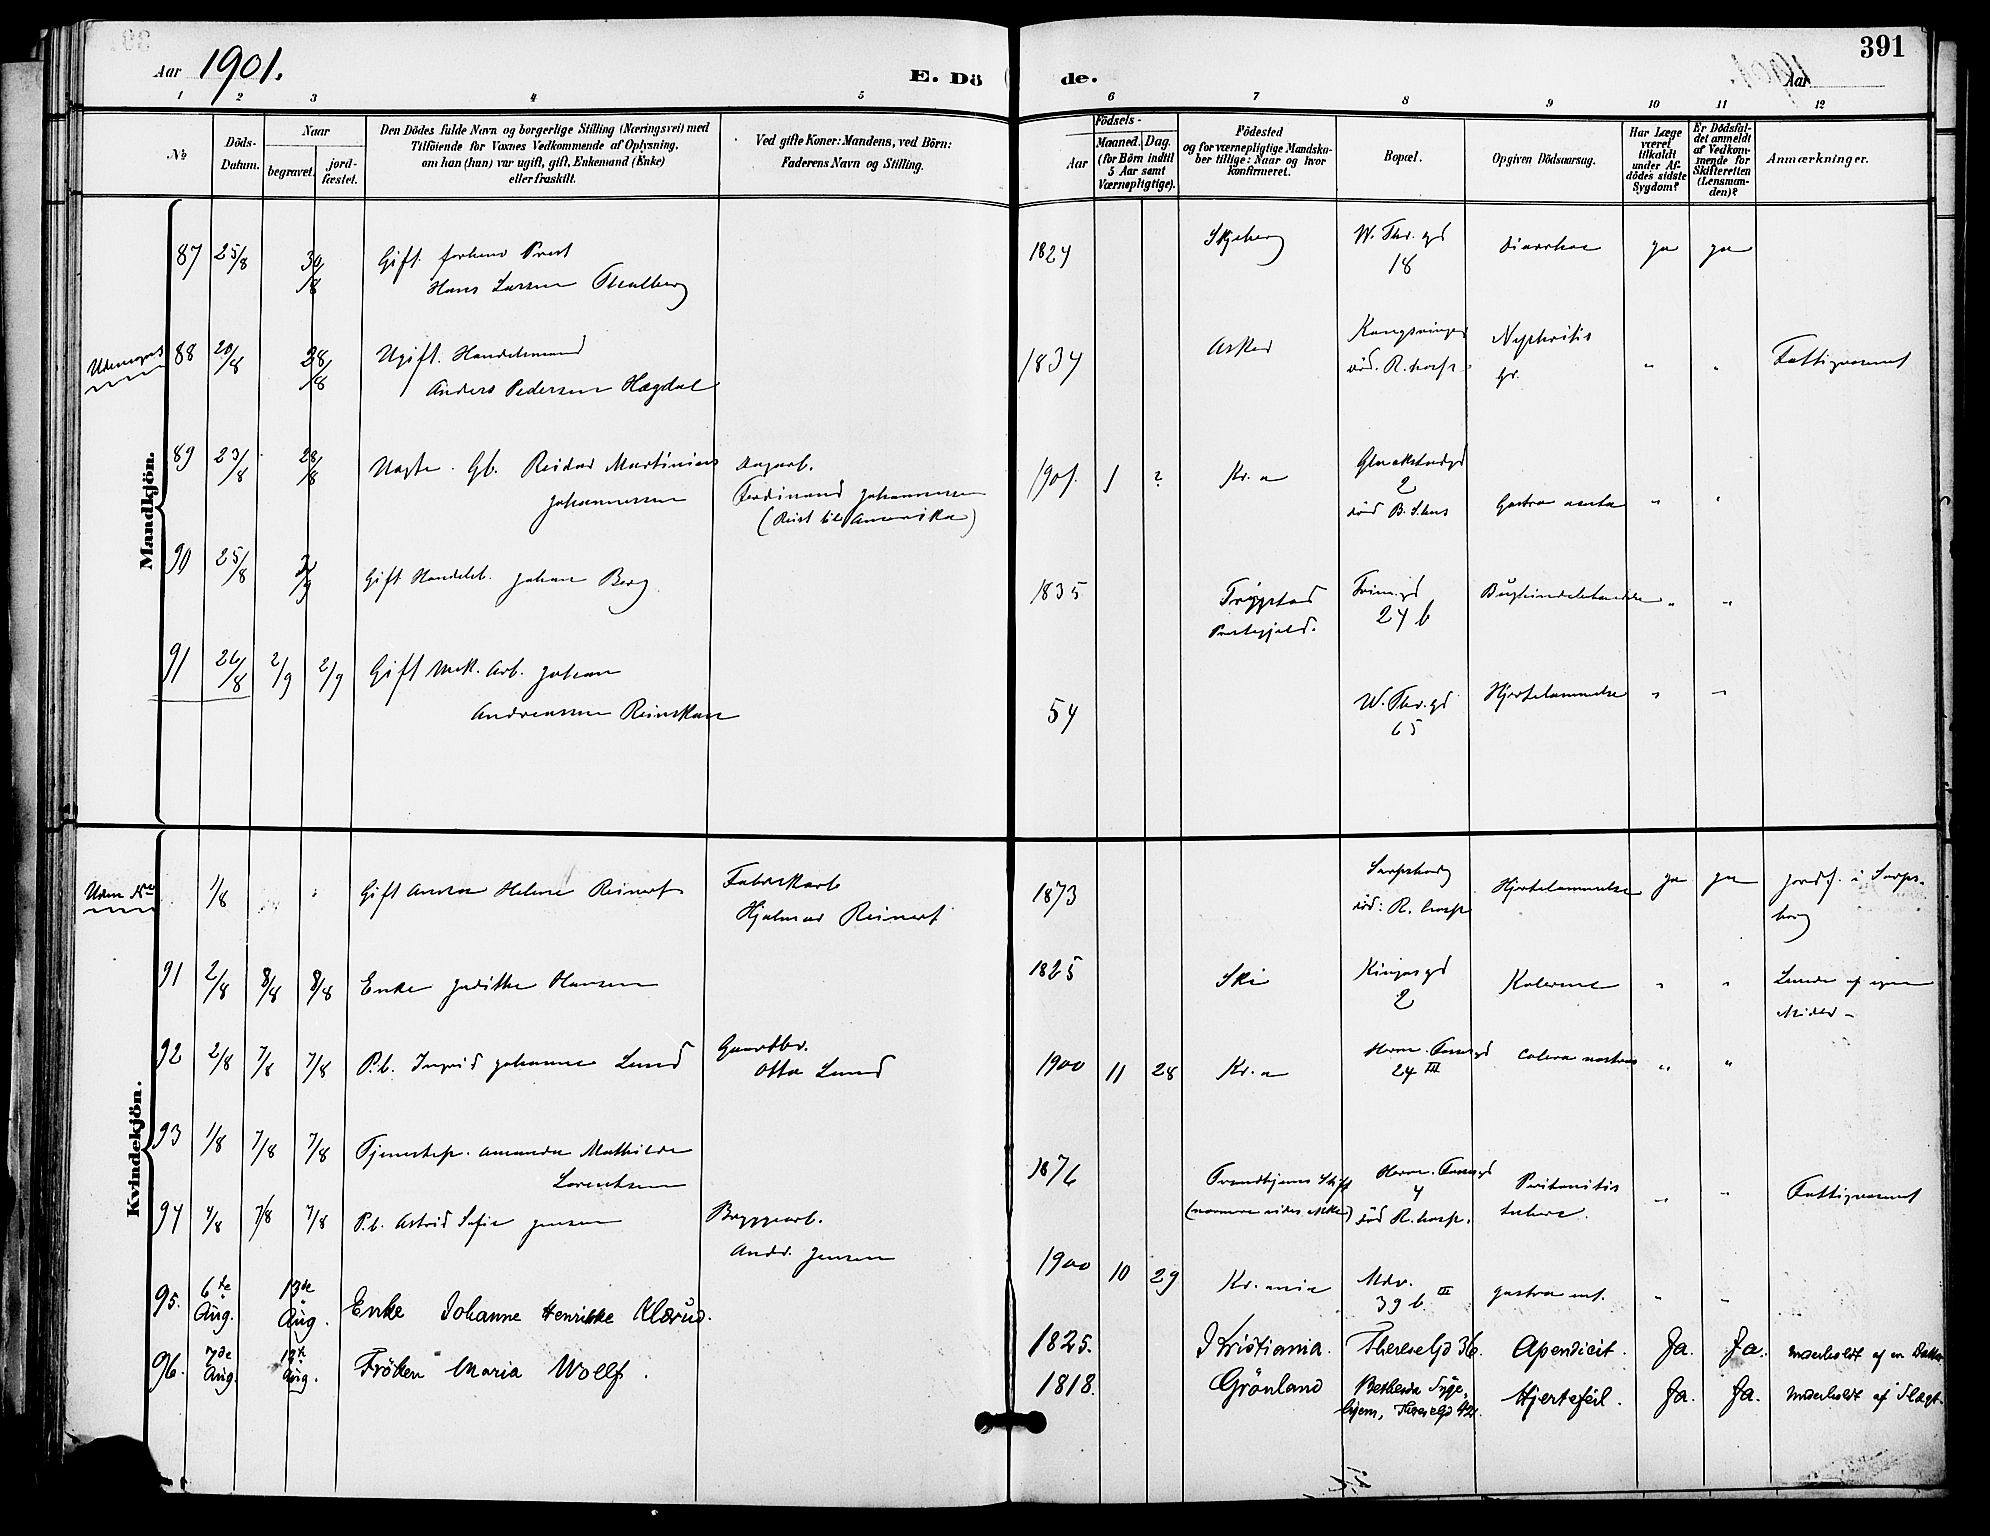 391
Aar 1901.
E. Dö de.
Aar
1 2 3 4 5 6 7 8 9 10 11 12
No
Döds-Datum.
Naar
begravet.
jord-fæstet.
Den Dödes fulde Navn og borgerlige Stilling (Næringsvei) med
Tilföiende for Voxnes Vedkommende af Oplysning,
om han (hun) var ugift, gift, Enkemand (Enke)
eller fraskilt.
Ved gifte Koner: Mandens, ved Börn:
Faderens Navn og Stilling.
Födsels-
Aar
Maaned. Dag.
(for Börn indtil
5 Aar samt
Værnepligtige).
Födested
og for værnepligtige Mandska-
ber tillige: Naar og hvor
konfirmeret.
Bopæl.
Opgiven Dödsaarsag.
Har Læge
været
tilkaldt
under Af-
dödes sidste
Sygdom?
Er Dödsfal-
det anmeldt
af Vedkom-
mende for
Skifteretten
(Lensman-
den)?
Anmærkninger.
Mandkjön.
87 25/8 30/8 Gift forhenv Prest
Hans Larsen Thalberg
1824 Skjeberg W. Thr. gd
18 diarrhoe ja ja
88 20/8 28/8 Ugift. Handelsmand
Anders Pedersen Hægdal
1834 Asker Kongsvinger
död. R. hosp. Nephritis
" " Fattigvæsenet
89 23/8 28/8 Uægte. Gb. Reidar Martinius
Johannessen
Ferdinand Johannessen
(Reist til Amerika)
1901. 1 ? Kr.a
2
död B. S.hus Gastro acuta " "
90 25/8 Gift Handelsb. Johan Berg
1835 Trygstad
Prestegjeld.
24 b " "
91 26/8 2/9 2/9 Gift Mek. Arb. Johan
Andreassen Reinskau
54 W. Thr. gd
65 Hjertelammelse " "
Kvindekjön.
Uden No 1/8 Gift Anna Helene Reinert Fabrikarb
Hjalmar Reinert
1873 Sarpsborg
död: R. hosp Hjertelammelse ja ja jordf. i Sarps-
borg
91 2/8 8/8 8/8 Enke Jaditte Hansen
1825 Ski Kingosgd
2 Kolerine " "
92 2/8 7/8 7/8 P.b. Ingrid Johanne Lund Gaardbr.
Otto Lund
1900 11 28 Kr.a Herm. Fossgd
24 III Colera nostras " "
93 1/8 7/8 7/8 Tjenestep. Amanda Mathilde
Lorentsen
1876 Trondhjems Stift
Herm. Fossgd
4
död R. hosp. Peritonitis
" " Fattigvæsenet
94 4/8 7/8 7/8 P.b. Astrid Sofie Jensen Bryggearb.
Andr. Jensen
1900 10 29 Kr.ania
39 b III gastro ent. " "
95. 6te
Aug. 13de
Aug. Enke Johanne Henrikke Klærud.
1825. Kristiania. Theresegd 36. Apendicit. Ja. Ja. underholdt af en Datter
96. 7de
Aug. 12te
Aug. Fröken Maria Wolff.
1818. Grönland Bethesda Syge-
hjem, Theresegd 42. Hjertefeil. Ja. Ja. underholdt af Slægt.